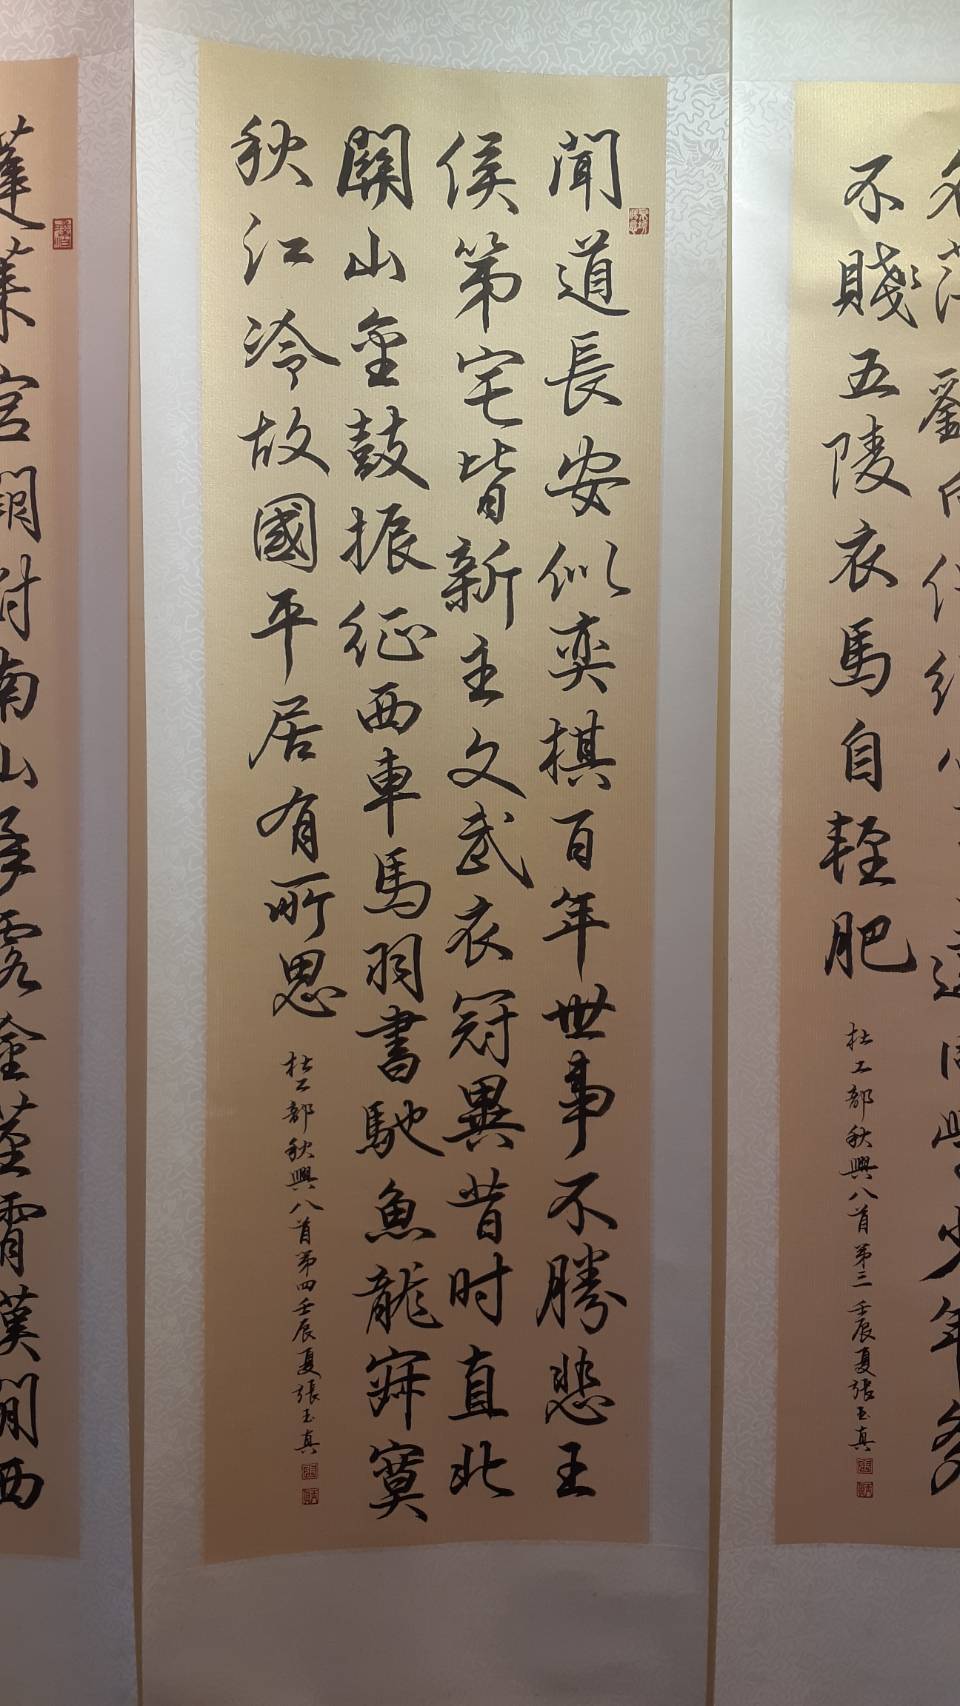 名薄劉向傳經心事違同學少年多
不賤五陵衣馬自輕肥
杜工部秋興八首第三壬辰夏張玉真
聞道長安似奕棋百年世事不勝悲王
侯第宅皆新主文武衣冠異昔时直北
關山金鼓振征西車馬羽書馳魚龍寂寞
秋江冷故國平居有所思
杜工部秋興八首第四壬辰夏張玉真
蓬萊宮闕對南山承露金莖霄漢間西